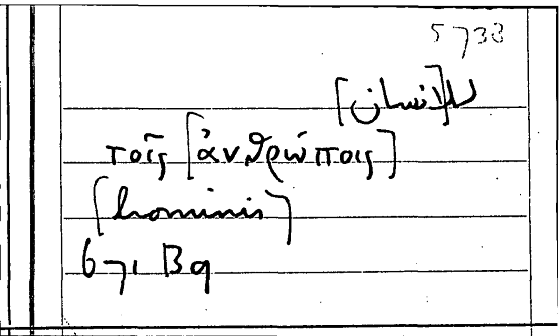 5738
لل[انسان]
τοῖς [ἀνθρώποις]
[hominis]
671 B9